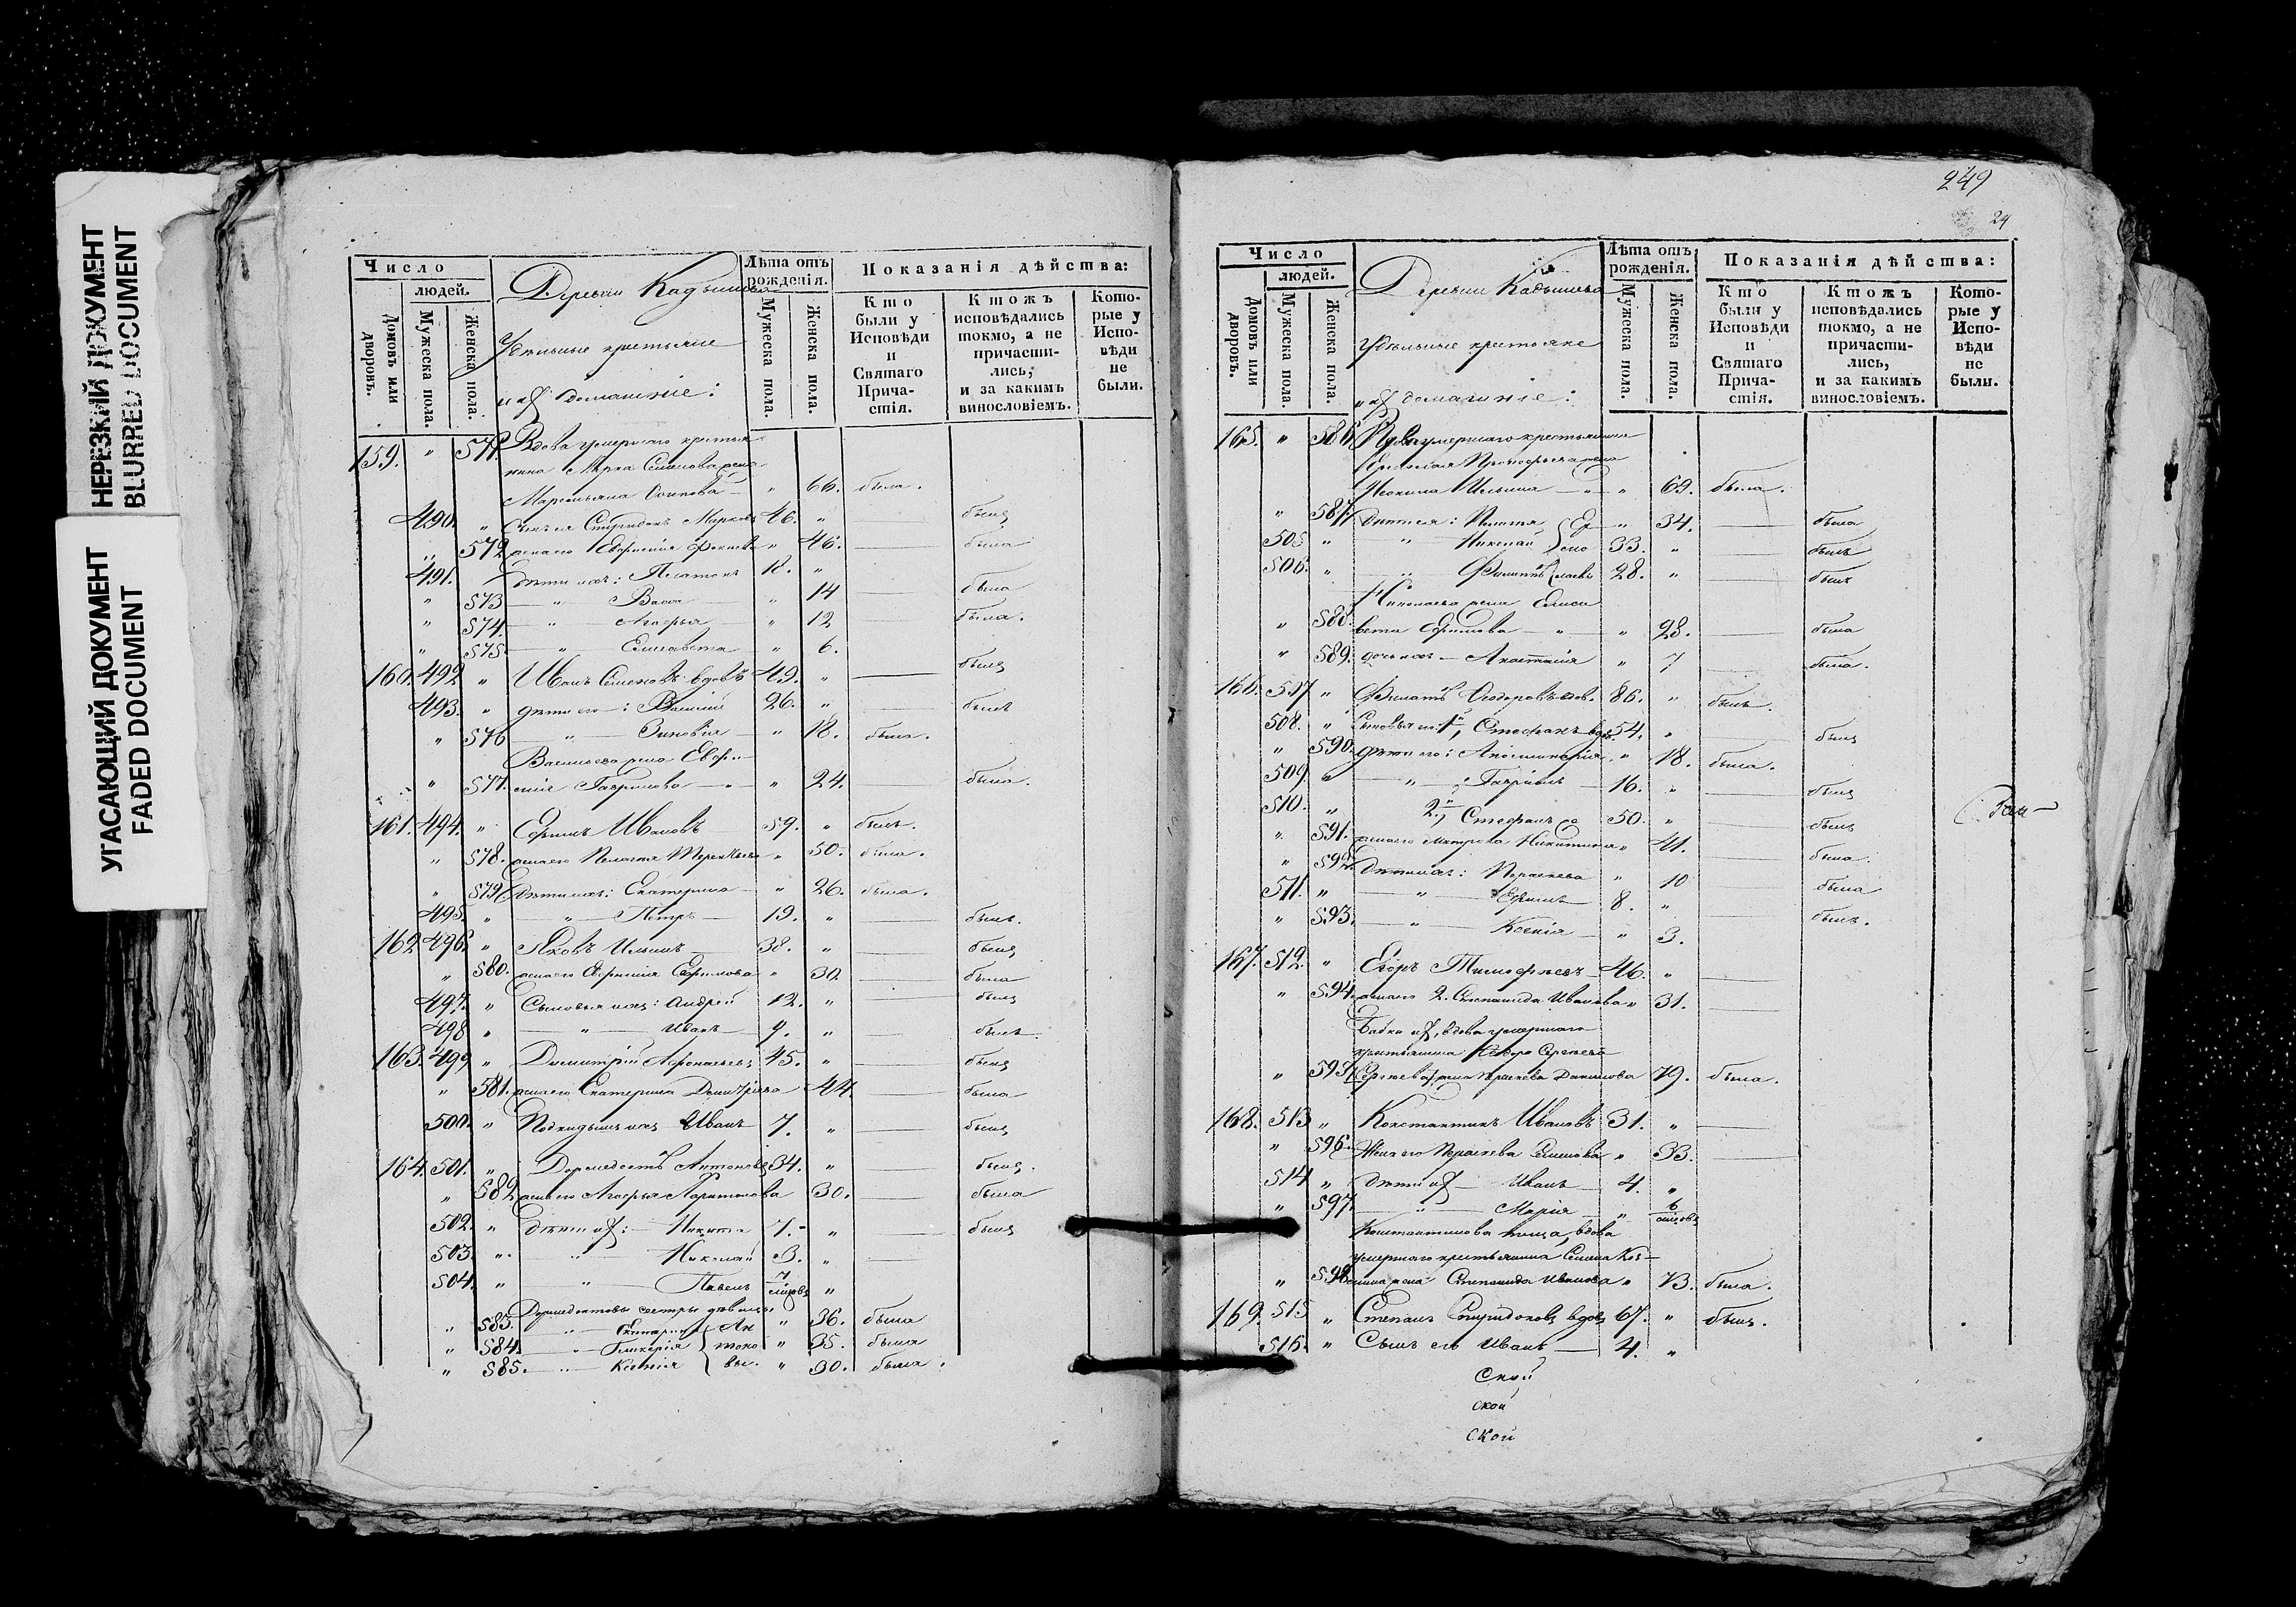 НЕРЕЗКИЙ ДОКУМЕНТ
BLURRED DOCUMENT
УГАСАЮЩИЙ ДОКУМЕНТ
FADED DOCUMENT
Число
людей.
Домовъ или дворовъ.
Мужеска пола.
Женска пола.
Деревни Кадышева
Удѣльные крестьяне
и их домашніе:
Лѣта отъ рожденія.
Мужеска пола.
Женска пола.
Показанія дѣйства:
Кто были у Исповѣди и Святаго Причастія.
Ктожъ исповѣдались токмо, а не причастились, и за какимъ винословіемъ.
Которые у Исповѣди не были.
159. " 571 Вдова умершаго крестья-
нина Марка Семенова жена
Маремьяна Осипова " 66. была.
490. " Сынъ ея Спиридонъ Марковъ 46. " былъ
" 572 жена его Евфимія " 46. была
491. Дѣти ихъ: Платонъ 18. "
" 573 " Васса " 14 была
" 574. " Агафья " 12 была.
" 575. " Елисавета " 6.
160. 492 " Иванъ Семеновъ вдовъ 49. " былъ
493. " дѣти его: Василій 26. " былъ
" 576 " Зиновія " 18. была.
Васильева жена Евфи-
" 577. мія Гаврилова " 24. была.
161. 494. " Ефимъ Ивановъ 59. " былъ.
" 578. жена его Пелагея Терентьева " 50. была.
" 579 Дѣти ихъ: Екатерина " 26. была.
495. " " Петръ 19. " былъ.
162 496. " Яковъ Ильинъ 38. " былъ
" 580. жена его Ефимія Ефимова " 30 была
497. " Сыновья ихъ: Андрей 12. " былъ
498 " " Иванъ 9. " былъ
163. 499 " Димитрій Афонасьевъ 45. " былъ
" 581. жена его Екатерина Димитріева 44. была
500. " Подкидышъ ихъ Иванъ 7. " былъ
164. 501. " Дормедонтъ Антоновъ 34. " былъ.
" 582 жена его Агафья Харитонова 30. была
502. " Дѣти их: Никита 7. " былъ
503. " " Николай 3. "
504. " " Павелъ 7 мѣсяцовъ "
Дормедонтовы сестры девицы
" 583. " Ан " 36. была
" 584. " Гликерія тоно " 35. была
" 585. " Ксенія вы. " 30. была.
249
24
Число
людей.
Домовъ или дворовъ.
Мужеска пола.
Женска пола.
Деревни Кадышева
Удѣльные крестьяне
и их домашніе:
Лѣта отъ рожденія.
Мужеска пола.
Женска пола.
Показанія дѣйства:
Кто были у Исповѣди и Святаго Причастія.
Ктожъ исповѣдались токмо, а не причастились, и за какимъ винословіемъ.
Которые у Исповѣди не были.
165. " 586 Вдова умершаго крестьянина
Прокофьева жена
Ильина " 69. была.
" 587. Дѣти ея: Пелагея " 34. была
505 " " Николай 33. " былъ
506. " " Филипъ 28. " былъ
Николаева жена Елиса
" 588. вета Ефимова " 28. была
" 589. дочь ихъ Анастасія " 7 была.
166. 507 " Филатъ Ѳедоровъ вдов. 86. " былъ.
508. " Сыновья его 1й, Стефанъ вдов. 54. " былъ
" 590. дѣти его: Аполинарія " 18. была.
509 " " Гавріилъ 16. " былъ
510. " 2й, Стефанъ 50. " былъ
" 591. жена его Матрена Никитина " 41. была.
" 592. Дѣти ихъ: Параскева " 10 была
511. " " Ефимъ 8. " былъ.
" 593. " Ксенія " 3.
167. 512. " Егоръ Тимофѣевъ 46. "
" 594. жена его 2. Степанида Иванова " 31.
Бабка их, вдова умершаго
крестьянина Сергѣева
" 595. жена Параскева Данилова 79. была.
168. 513 " Константинъ Ивановъ 31. "
" 596. Жена его Параскева Семенова " 33.
514 " Дѣти их Иванъ 4. "
" 597. " Марія " 6 мѣсяцовъ
Константинова теща, вдова
умершаго крестьянина Семена Коз-
" 598. мина жена Степанида Иванова " 73. была.
169. 515 " Степанъ Спиридоновъ вдовъ 67. " былъ.
516. " Сынъ его Иванъ 4. "
Ской
ской
ской